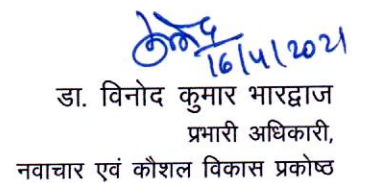 16/4/2021
डा. विनोद कुमार भारद्वाज
प्रभारी अधिकारी,
नवाचार एवं कौशल विकास प्रकोष्ठ